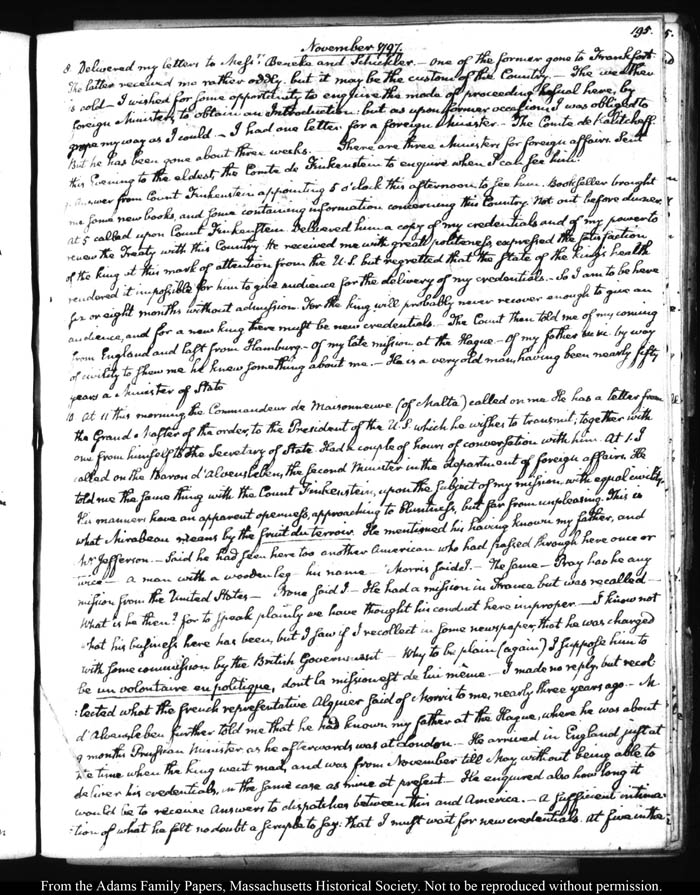 195.
November 1797.
8. Delivered my letters to Mess.rs Beneke and Schickler.— One of the former gone to Frankfort.
The latter received me rather oddly. but it may be the custom of the Country.— The weather
is cold— I wished for some opportunity to enquire the mode of proceeding usual here, by
foreign Ministers, to obtain an Introduction: but as upon former occasions, I was obliged to
grope my way as I could.— I had one letter for a foreign Minister.— The Comte de Kalitcheff.
But he has been gone about three weeks.— There are three Ministers for foreign affairs. Sent
this Evening to the eldest the Comte de Finkenstein to enquire when I can see him.
9. Answer from Count Finkenstein appointing 5 o'clock this afternoon to see him. Bookseller brought
me some new books, and some containing information concerning this Country. Not out before dinner.
At 5 called upon Count Finkenstein. Delivered him a copy of my credentials and of my power to
renew the Treaty with this Country. He received me with great politeness, expressed the satisfaction
of the king at this mark of attention from the U.S. but regretted that the State of the king's health
rendered it impossible for him to give audience for the delivery of my credentials.— So I am to be here
six or eight months without admission. For the king will probably never recover enough to give an
audience, and for a new king there must be new credentials.— The Count then told me of my coming
from England and last from Hamburg— of my late mission at the Hague— of my father &c &c. by way
of civility to shew me he knew something about me.— He is a very old man, having been nearly fifty
years a Minister of State
10. At 11 this morning, the Commandeur de Maisonneuve (of Malta) called on me. He has a letter from
the Grand Master of the order, to the President of the U.S. which he wishes to transmit, together with
one from himself to the Secretary of State. Had a couple of hours of conversation with him. At 1. I
called on the Baron d'Alvensleben, the second Minister in the department of foreign affairs. He
told me the same thing with the Count Finkenstein, upon the subject of my mission, with equal civility.
His manners have an apparent openness, approaching to bluntness, but far from unpleasing. This is
what Mirabeau means by the fruit du terroir. He mentioned his having known my father, and
Mr Jefferson.— Said he had seen here too another American who had passed through here once or
twice— a man with a wooden leg— his name— Morris said I.— The same— Pray has he any
mission from the United States— None said I— He had a mission in France but was recalled—
What is he then? for to speak plainly we have thought his conduct here improper.— I know not
what his business here has been, but I saw if I recollect in some newspaper, that he was charged
with some commission by the British Government— Why to be plain (again) I suppose him to
be un volontaire en politique, dont la mission est de lui même— I made no reply, but recol-
:lected what the french representative Alquier said of Morris to me, nearly three years ago.— M
d'Alvensleben further told me that he had known my father at the Hague, where he was about
9 months Prussian Minister, as he afterwards was at London— He arrived in England just at
the time when the king went mad, and was from November till May without being able to
deliver his credentials, in the same case as mine at present— He enquired also how long it
would be to receive answers to dispatches between this and America.— A sufficient intima-
tion of what he felt no doubt a scruple to say: that I must wait for new credentials. At five in the
From the Adams Family Papers, Massachusetts Historical Society. Not to be reproduced without permission.